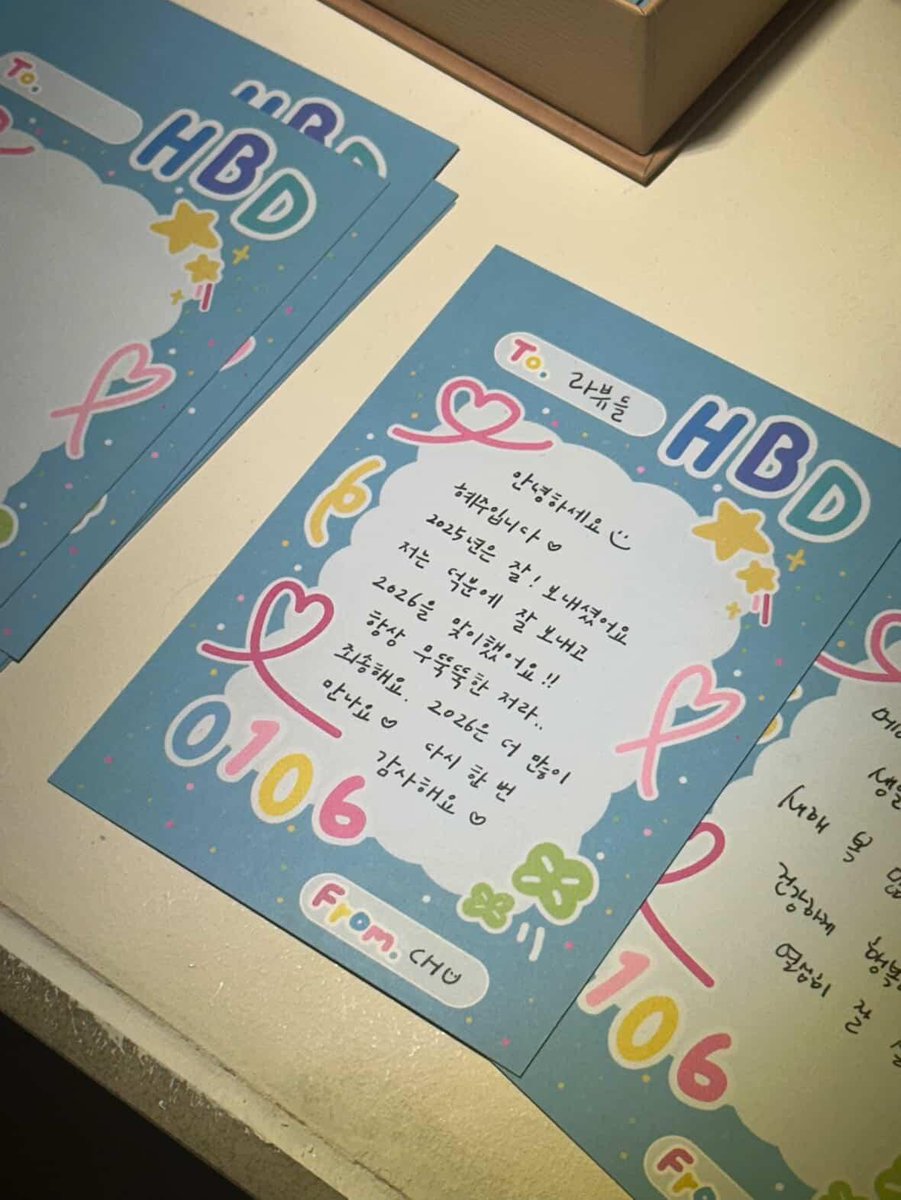 To.
HBD
HBD
To. 라뷰들
HBD
안녕하세요
혜주입니다 ♡
2025년은 잘! 보내셨어요
저는 덕분에 잘 보내고
2026을 맞이했어요!!
항상 무뚝뚝한 저라..
죄송해요. 2026은 더 많이
만나요 ♡ 다시 한 번
감사해요 ♡
0106
From. CHU
새해 복
건강하게 행복
열심히 잘
106